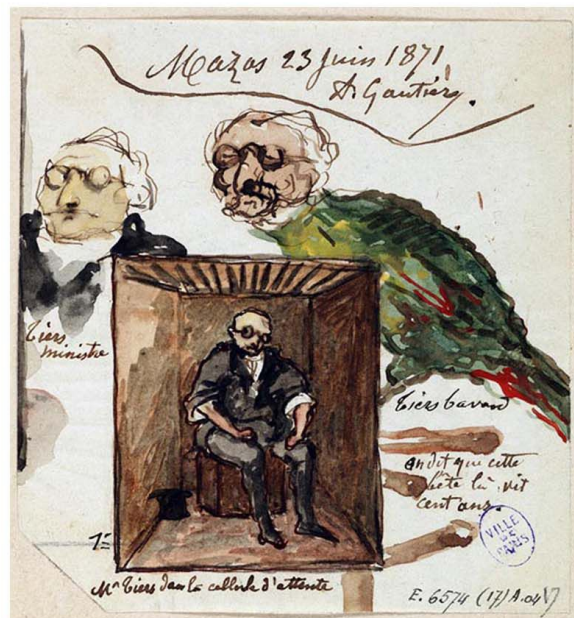 Mazas 23 juin 1871
A. Gautier.
Tiers
ministre
Tiers bavard
on dit que cette
bête là, vit
cent ans.
1º
Mr Tiers dans la cellule d'attente
VILLE
DE
PARIS
E. 6574 (17) A.04